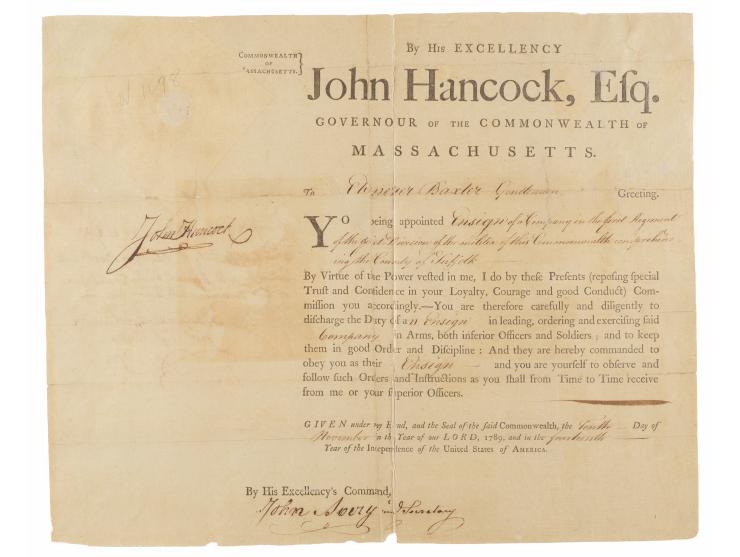 COMMONWEALTH
OF
MASSACHUSETTS.
By His EXCELLENCY
John Hancock, Eſq.
GOVERNOUR OF THE COMMONWEALTH OF
MASSACHUSETTS.
To Ebenezer Baxter Gentleman Greeting.
Yo being appointed Ensign of a Company in the first Regiment
of the first Division of the militia of this Commonwealth comprehen-
ing the County of Suffolk
By Virtue of the Power veſted in me, I do by theſe Preſents (repoſing ſpecial
Truſt and Confidence in your Loyalty, Courage and good Conduct) Com-
miſſion you accordingly.—You are therefore carefully and diligently to
diſcharge the Duty of an Ensign in leading, ordering and exerciſing ſaid
Company in Arms, both inferior Officers and Soldiers; and to keep
them in good Order and Diſcipline: And they are hereby commanded to
obey you as their Ensign and you are yourſelf to obſerve and
follow ſuch Orders and Inſtructions as you ſhall from Time to Time receive
from me or your ſuperior Officers.
John Hancock
GIVEN under my Hand, and the Seal of the ſaid Commonwealth, the Tenth Day of
November in the Year of our LORD, 1789, and in the fourteenth
Year of the Independence of the United States of AMERICA.
By His Excellency's Command,
John Avery Secretary